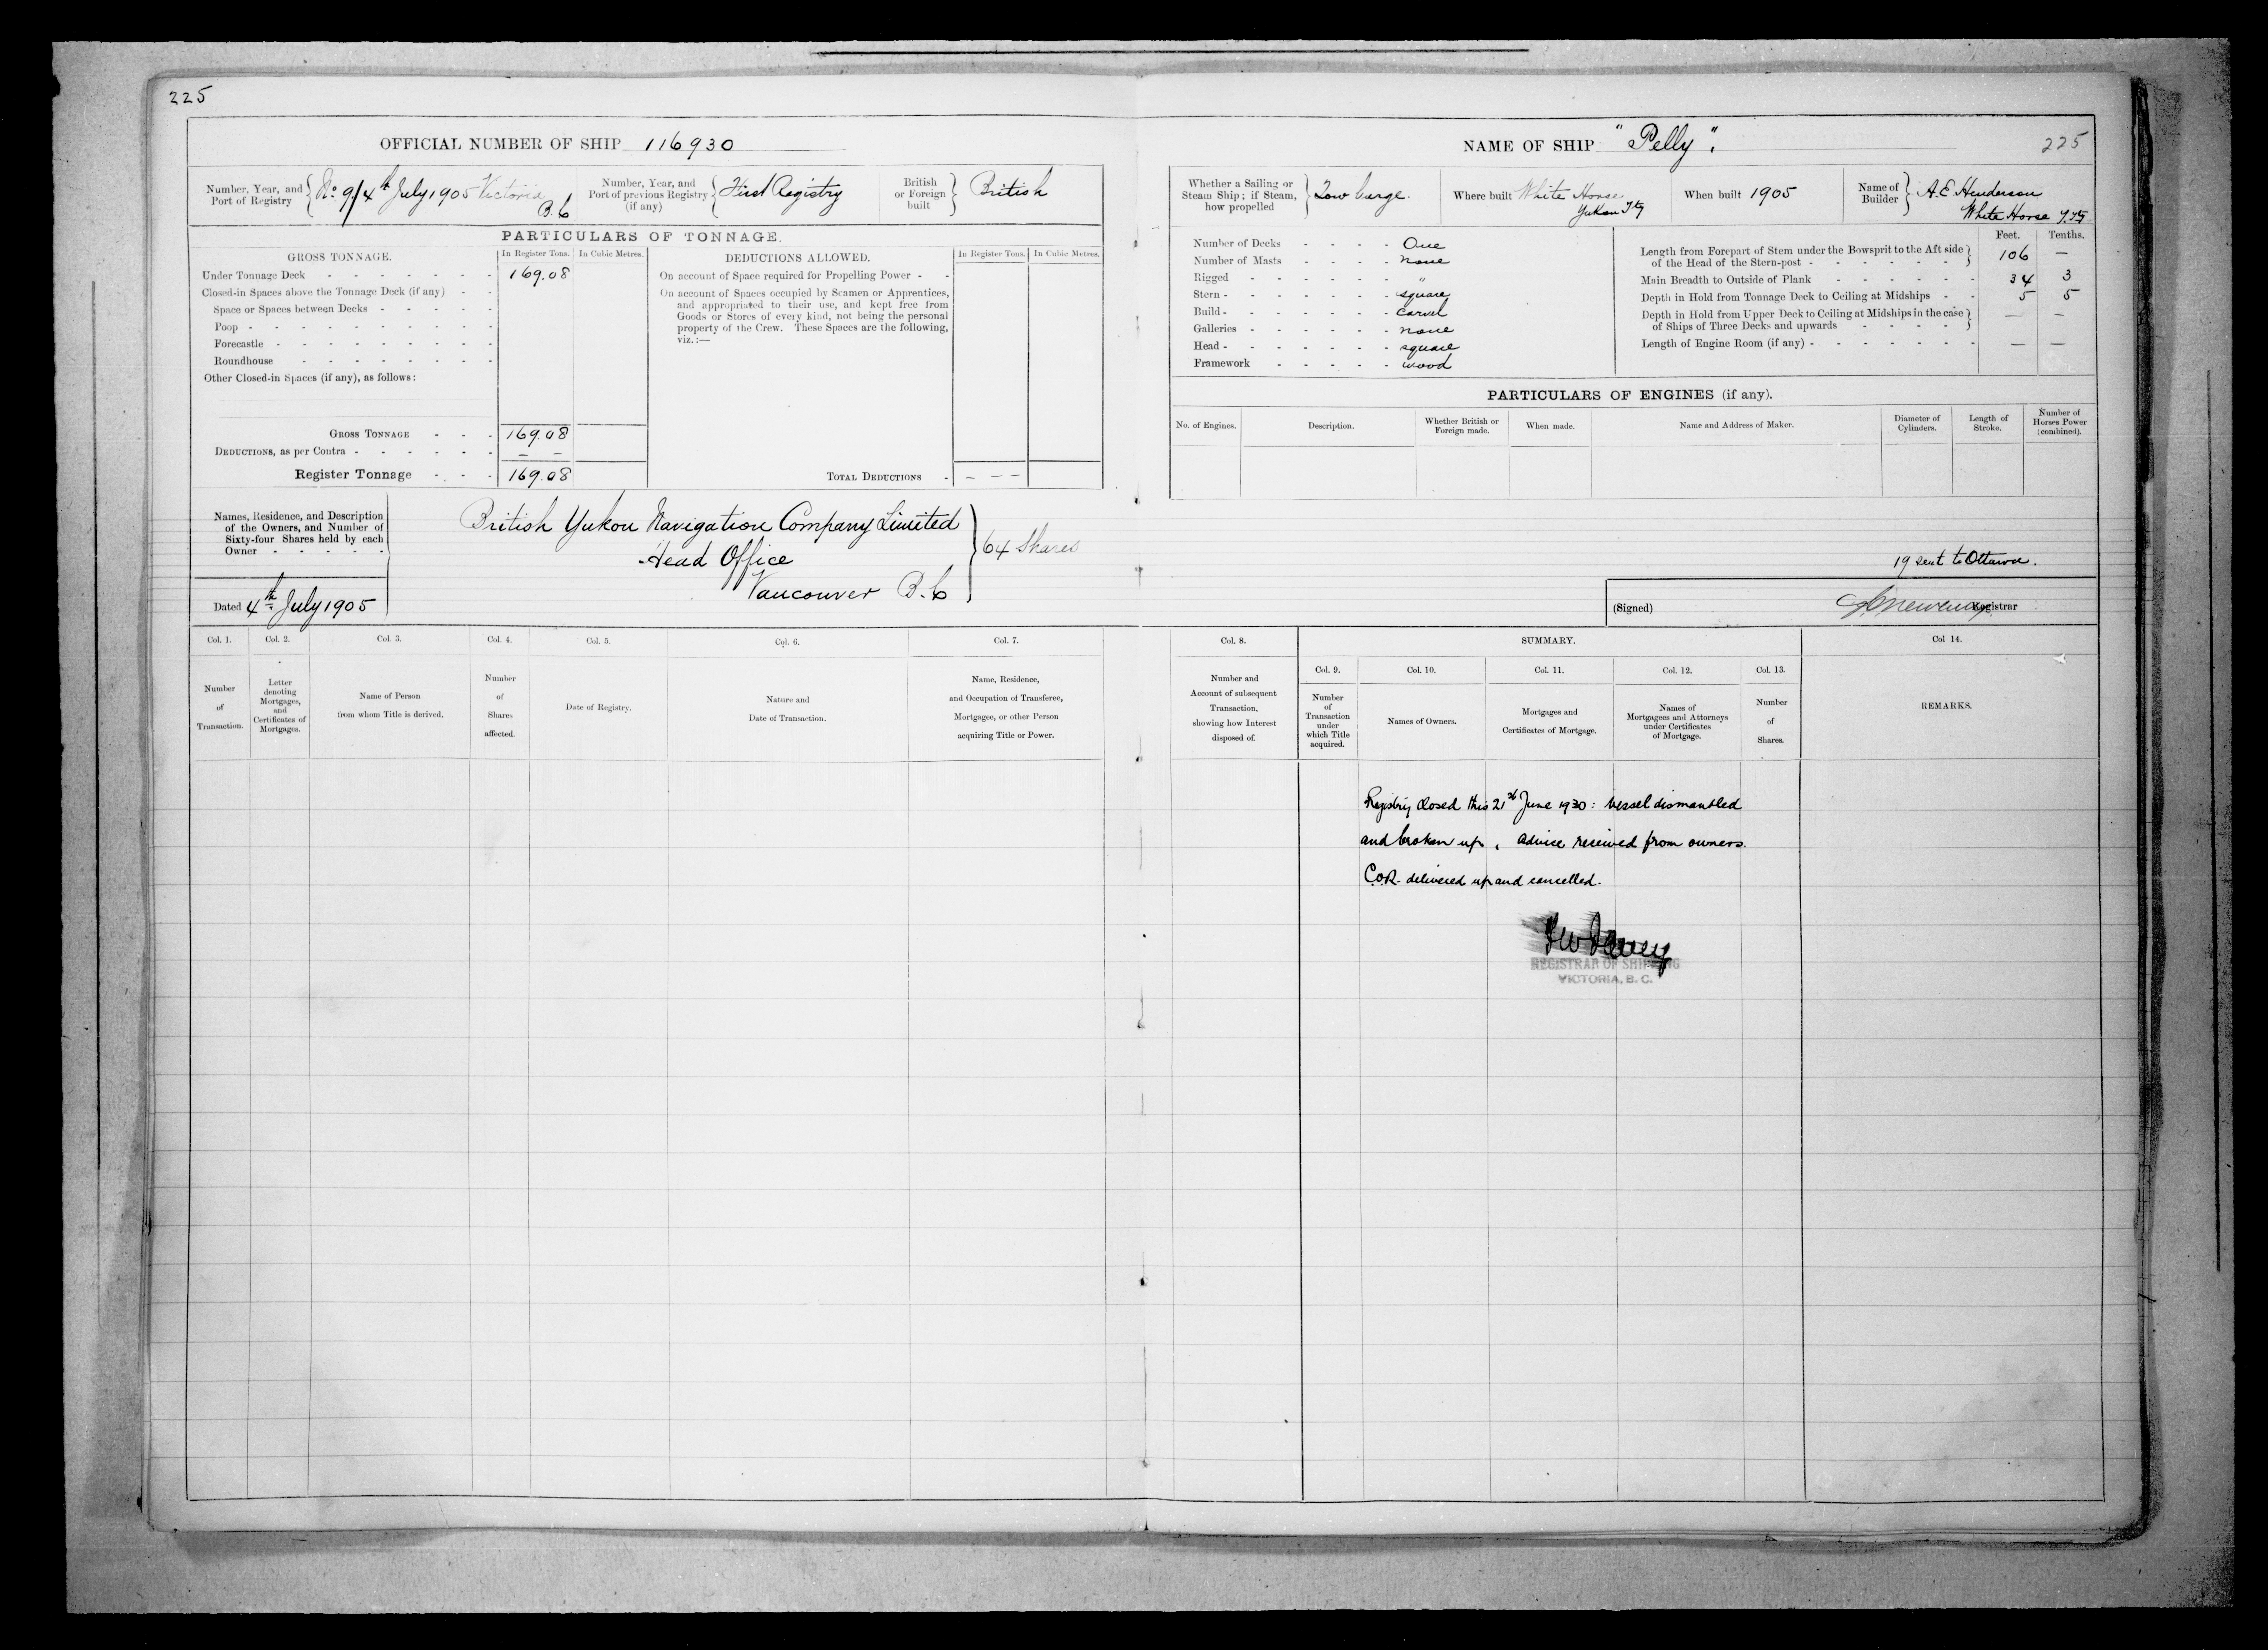 225
OFFICIAL NUMBER OF SHIP 116930
Number, Year, and Port of Registry { No 9/4th July 1905 Victoria B.C
Number, Year, and Port of previous Registry (if any) { First Registry
British or Foreign built } British
PARTICULARS OF TONNAGE.
GROSS TONNAGE. In Register Tons. In Cubic Metres.
Under Tonnage Deck 169.08
Closed-in Spaces above the Tonnage Deck (if any)
Space or Spaces between Decks
Poop
Forecastle
Roundhouse
Other Closed-in Spaces (if any), as follows:
GROSS TONNAGE 169.08
DEDUCTIONS, as per Contra — —
Register Tonnage 169.08
DEDUCTIONS ALLOWED. In Register Tons. In Cubic Metres.
On account of Space required for Propelling Power
On account of Spaces occupied by Seamen or Apprentices,
and appropriated to their use, and kept free from
Goods or Stores of every kind, not being the personal
property of the Crew. These Spaces are the following,
viz.:—
TOTAL DEDUCTIONS - — — —
Names, Residence, and Description
of the Owners, and Number of
Sixty-four Shares held by each
Owner
British Yukon Navigation Company Limited
Head Office
Vancouver B.C
} 64 Shares
Dated 4th July 1905
Col. 1. Number of Transaction.
Col. 2. Letter denoting Mortgages, and Certificates of Mortgages.
Col. 3. Name of Person from whom Title is derived.
Col. 4. Number of Shares affected.
Col. 5. Date of Registry.
Col. 6. Nature and Date of Transaction.
Col. 7. Name, Residence, and Occupation of Transferee, Mortgagee, or other Person acquiring Title or Power.
NAME OF SHIP "Pelly".
225
Whether a Sailing or Steam Ship; if Steam, how propelled } Tow barge.
Where built White Horse Yukon Ty
When built 1905
Name of Builder } A.E. Henderson White Horse Y.Ty
Number of Decks One
Number of Masts none
Rigged "
Stern square
Build carvel
Galleries none
Head square
Framework wood
Feet. Tenths.
Length from Forepart of Stem under the Bowsprit to the Aft side of the Head of the Stern-post 106 —
Main Breadth to Outside of Plank 34 3
Depth in Hold from Tonnage Deck to Ceiling at Midships 5 5
Depth in Hold from Upper Deck to Ceiling at Midships in the case of Ships of Three Decks and upwards — —
Length of Engine Room (if any) — —
PARTICULARS OF ENGINES (if any).
No. of Engines.
Description.
Whether British or Foreign made.
When made.
Name and Address of Maker.
Diameter of Cylinders.
Length of Stroke.
Number of Horses Power (combined).
19 sent to Ottawa.
(Signed) Registrar
Col. 8. Number and Account of subsequent Transaction, showing how Interest disposed of.
SUMMARY.
Col. 9. Number of Transaction under which Title acquired.
Col. 10. Names of Owners.
Col. 11. Mortgages and Certificates of Mortgage.
Col. 12. Names of Mortgagees and Attorneys under Certificates of Mortgage.
Col. 13. Number of Shares.
Col 14. REMARKS.
Registry closed this 21st June 1930: Vessel dismantled
and broken up, advice received from owners.
C.O.R. delivered up and cancelled.
REGISTRAR OF SHIPPING
VICTORIA, B.C.